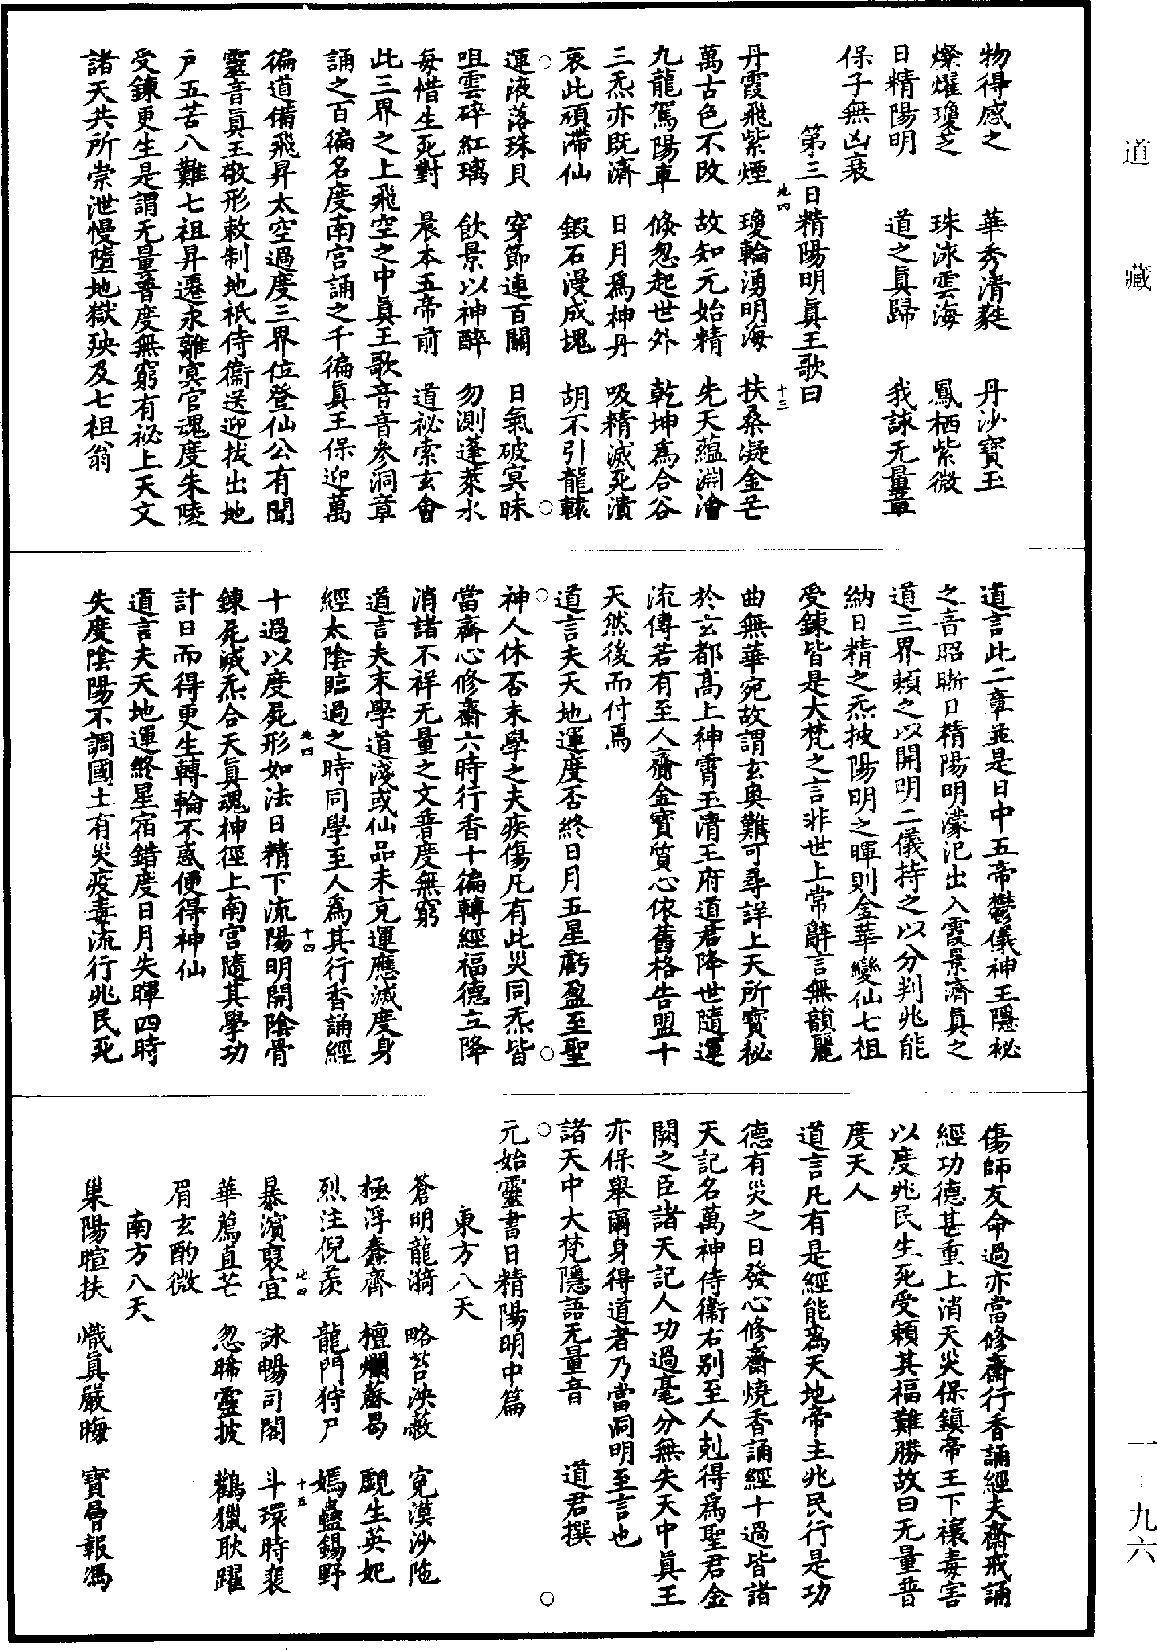 道藏
物得感之　華秀清甤　丹沙寶玉
燦燿瓊芝　珠泳雲海　鳳栖紫微
日精陽明　道之真歸　我詠无量章
保子無凶衰
第三日精陽明真王歌曰
丹霞飛紫煙　瓊輪湧明海　扶桑凝金芒
萬古色不改　故知元始精　先天蘊淵澮
九龍駕陽車　倏忽起世外　乾坤為合谷
三炁亦既濟　日月為神丹　吸精滅死潰
哀此頑滯仙　鍜石漫成塊　胡不引龍轅
運液落珠貝　穿節連百關　日氣破冥昧
咀雲碎紅璃　飲景以神醉　勿測蓬萊水
每惜生死對　晨本五帝前　道祕索玄會
此三界之上飛空之中真王歌音音參洞章
誦之百徧名度南宮誦之千徧真王保迎萬
徧道備飛昇太空過度三界位登仙公有聞
靈音真王敬形敕制地祇侍衞送迎拔出地
戶五苦八難七祖昇遷永離冥官魂度朱陵
受鍊更生是謂无量普度無窮有祕上天文
諸天共所崇泄慢墮地獄殃及七祖翁
道言此二章並是日中五帝鬱儀神王隱祕
之音昭晰日精陽明濛汜出入霞景濟真之
道三界賴之以開明二儀持之以分判兆能
納日精之炁披陽明之暉則金華變仙七祖
受鍊皆是大梵之言非世上常辭言無韻麗
曲無華宛故謂玄奥難可尋詳上天所寶秘
於玄都高上神霄玉清王府道君降世隨運
流傳若有至人齎金寶質心依舊格告盟十
天然後而付焉
道言夫天地運度否終日月五星虧盈至聖
神人休否末學之夫疾傷凡有此災同炁皆
當齋心修齋六時行香十徧轉經福德立降
消諸不祥无量之文普度無窮
道言夫末學道淺或仙品未充運應滅度身
經太陰臨過之時同學至人為其行香誦經
十過以度屍形如法日精下流陽明開陰骨
鍊屍咸炁合天真魂神徑上南宮隨其學功
計日而得更生轉輪不惑便得神仙
道言夫天地運終星宿錯度日月失暉四時
失度陰陽不調國土有災疫毒流行兆民死
傷師友命過亦當修齋行香誦經夫齋戒誦
經功德甚重上消天災保鎮帝王下禳毒害
以度兆民生死受賴其福難勝故曰无量普
度天人
道言凡有是經能為天地帝主兆民行是功
德有災之日發心修齋燒香誦經十過皆諸
天記名萬神侍衞右别至人剋得為聖君金
闕之臣諸天記人功過毫分無失天中真王
亦保舉爾身得道者乃當洞明至言也
諸天中大梵隱語无量音　道君撰
元始靈書日精陽明中篇
東方八天
蒼明龍漪　略苔泱蔽　寃漠沙陁
極浮蠢齊　檀爛蘇曷　覻生英妃
烈注倪羡　龍門狩尸　嫣蠱錫野
暴濵裒宜　詠暢司閣　斗環時裴
華薦直芒　忽晞靈披　鸛獵耿躍
眉玄酌微
南方八天
巢陽暄扶　熾真嚴晦　寶曾報馮
一-九六